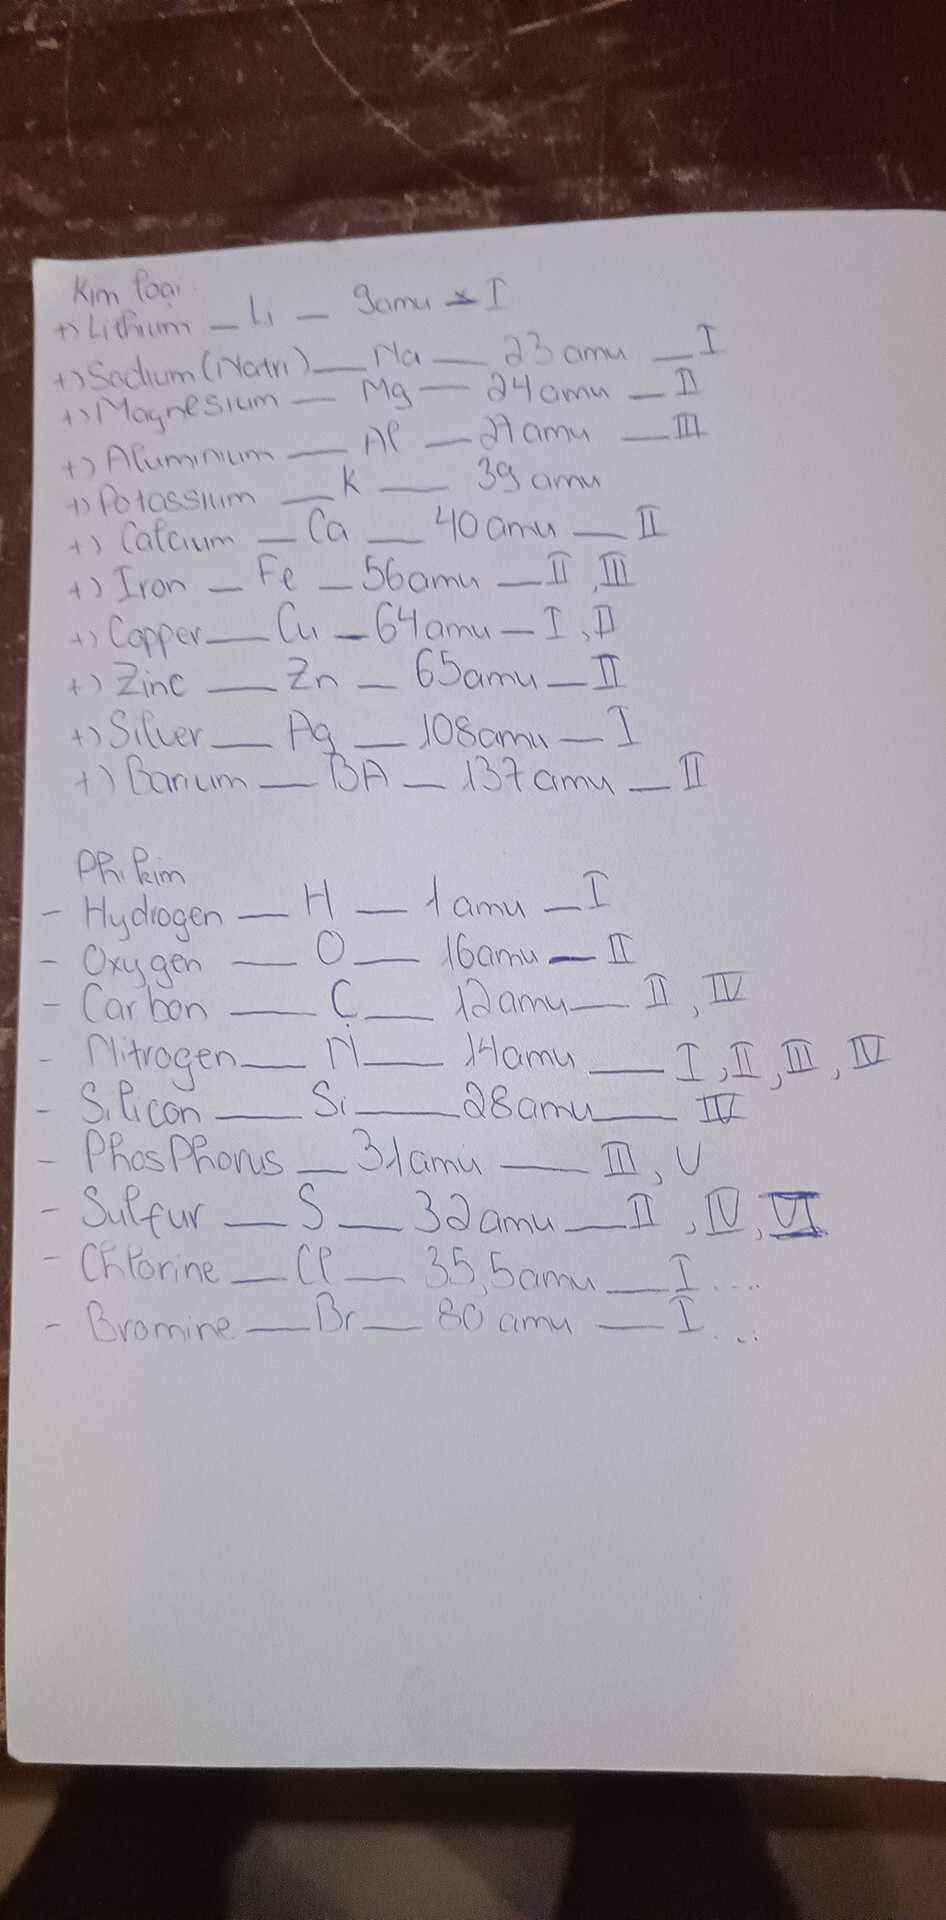 Kim loại
+) Lithium — Li — 9amu — I
+) Sodium (Natri) — Na — 23 amu — I
+) Magnesium — Mg — 24 amu — II
+) Aluminium — Al — 27 amu — III
+) Potassium — K — 39 amu
+) Calcium — Ca — 40 amu — II
+) Iron — Fe — 56 amu — II, III
+) Copper — Cu — 64 amu — I, II
+) Zinc — Zn — 65 amu — II
+) Silver — Ag — 108 amu — I
+) Barium — BA — 137 amu — II
Phi kim
- Hydrogen — H — 1 amu — I
- Oxygen — O — 16 amu — II
- Carbon — C — 12 amu — II, IV
- Nitrogen — N — 14 amu — I, II, III, IV
- Silicon — Si — 28 amu — IV
- PhosPhorus — 31 amu — III, V
- Sulfur — S — 32 amu — II, IV, VI
- Chlorine — Cl — 35,5 amu — I ...
- Bromine — Br — 80 amu — I ...